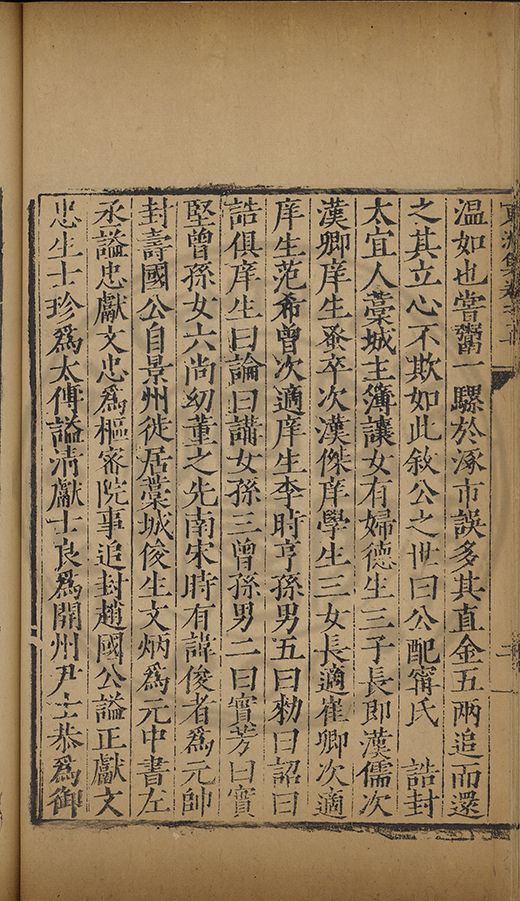 二
温如也嘗鬻一騾於涿市誤多其直金五兩追而還
之其立心不欺如此敘公之世曰公配甯氏　誥封
太宜人藁城主簿讓女有婦德生三子長即漢儒次
漢卿庠生蚤卒次漢傑庠學生三女長適崔卿次適
庠生范希曾次適庠生李時亨孫男五曰勑曰詔曰
誥俱庠生曰論曰講女孫三曾孫男二曰實芳曰實
堅曾孫女六尚幼董之先南宋時有諱俊者爲元帥
封壽國公自景州徙居藁城俊生文炳爲元中書左
丞謚忠獻文忠爲樞密院事追封趙國公謚正獻文
忠生士珍爲太傅謚清獻士良爲開州尹士恭爲御